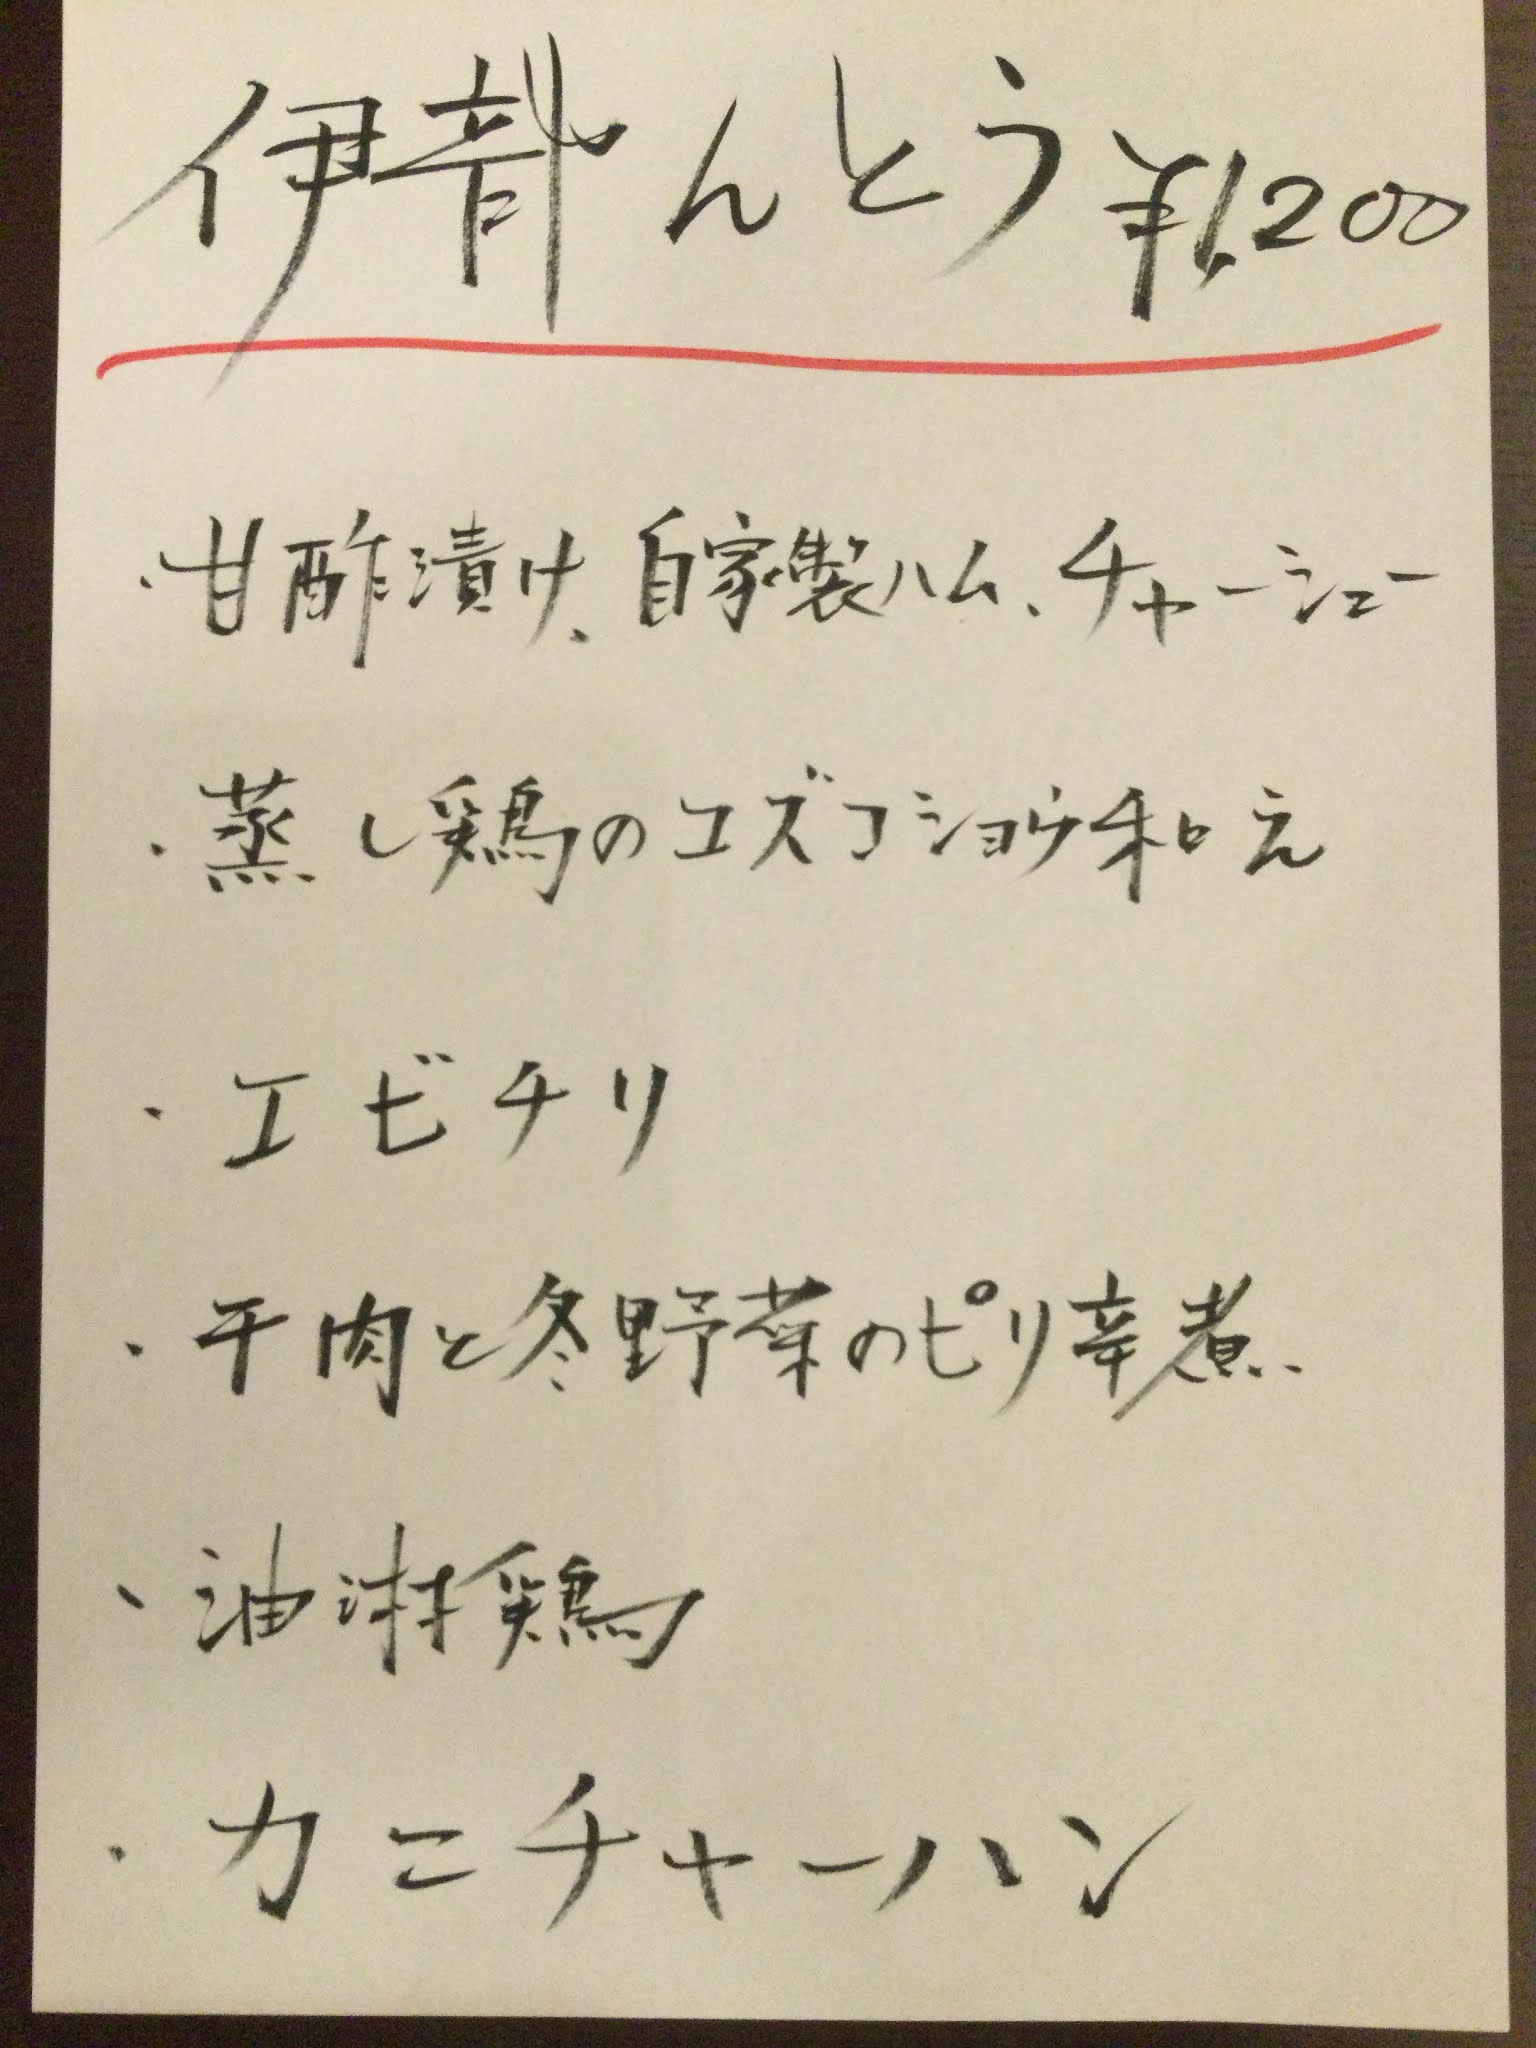 伊部んとう ¥1,200
・甘酢漬け、自家製ハム、チャーシュー
・蒸し鶏のユズコショウ和え
・エビチリ
・干肉と冬野菜のピリ辛煮
・油淋鶏
・カニチャーハン